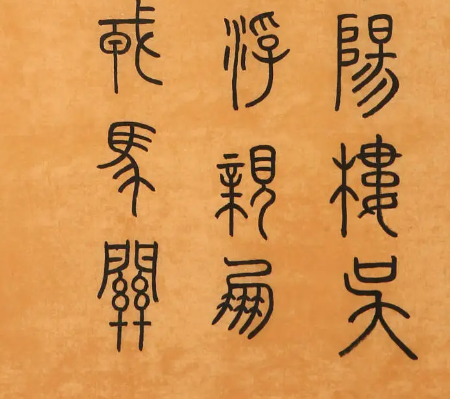 陽樓吳
浮親朋
戎馬關